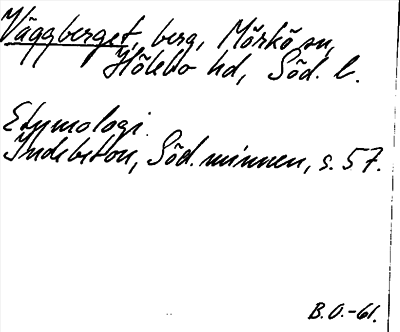 Väggberget, berg, Mörkö sn,
Hölebo hd, Söd. l.
Etymologi.
Indebetou, Söd. minnen, s. 57.
B.O.-61.